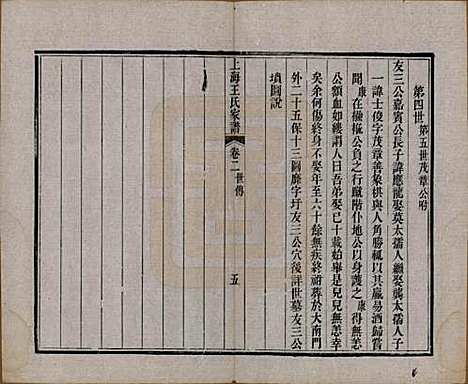 第四世 第五世茂章公附
友三公嘉賓公長子諱應龍娶莫太孺人繼娶龔太孺人子
一諱士俊字茂章善象棋與人角勝祇以其贏易酒歸嘗
聞康在襁褓公負之行蹴階仆地公以身護之康得無恙
公額血如縷謂人曰吾弟娶已十載始舉是兒兒無恙幸
矣余何傷終身不娶年至六十餘無疾終祔葬於大南門
外二十五保十三圖靡字圩友三公穴後詳世墓友三公
墳圖說
上海王氏家譜
卷二 世傳
五